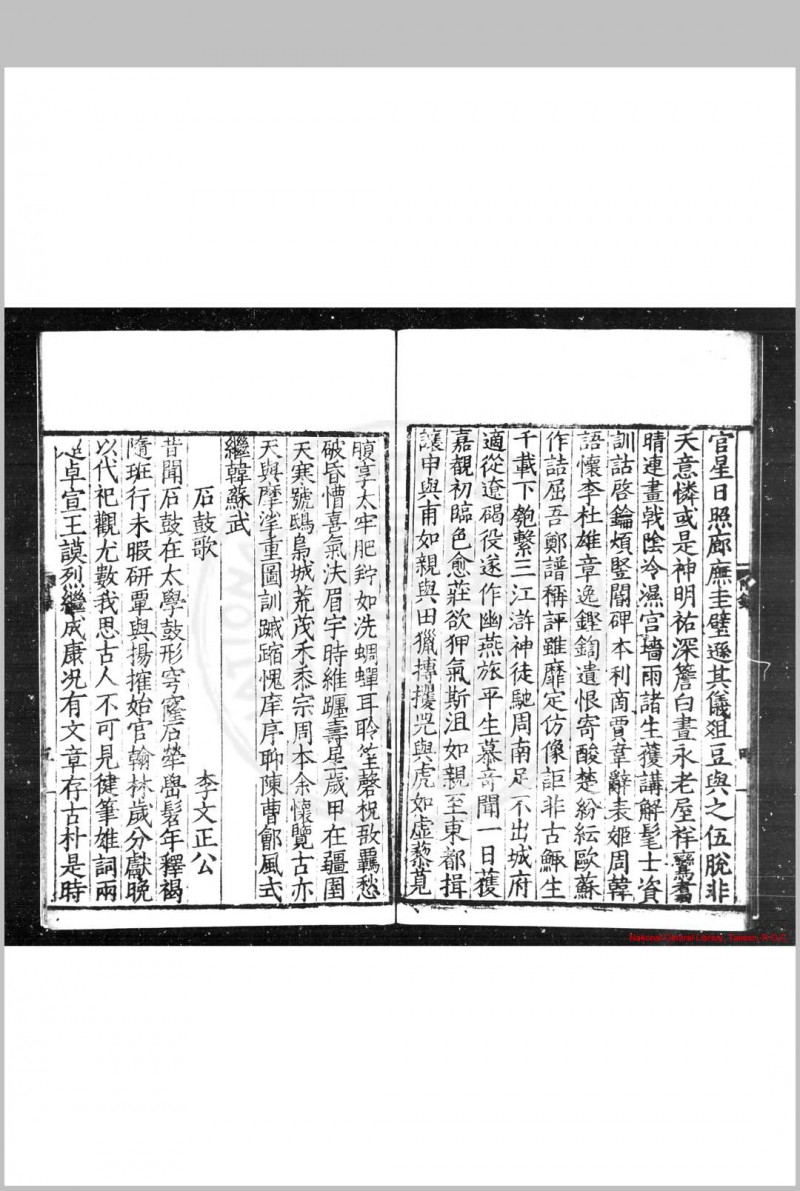 官星日照廊廡圭璧遜其儀俎豆與之伍脫非
天意憐或是神明祐深簷白晝永老屋祥鸞翥
晴連畫戟陰冷濕宫墻雨諸生獲講解髦士資
訓詁啓鑰煩竪閽碑本利商賈韋辭表姬周韓
語懷李杜雄章逸鏗鍧遺恨寄酸楚紛紜歐蘇
作詰屈吾鄭譜稱評雖靡定仿像詎非古鯫生
千載下匏繫三江滸神徒馳周南足不出城府
適從遼碣役遂作幽燕旅平生慕竒聞一日獲
嘉觀初臨色愈莊欲狎氣斯沮如親至東都揖
讓申與甫如親與田獵搏攫兕與虎如虛藜莧
腹享太牢肥羜如洗蜩蟬耳聆笙磬柷敔羈愁
破昏懵喜氣决眉宇時維躔壽星歲甲在疆圉
天寒號鴟梟城荒茂禾黍宗周本余懷覽古亦
天與摩挲重圖訓踧踖愧庠序聊陳曹鄶風式
繼韓蘇武
石鼓歌　李文正公
昔聞石鼓在太學鼓形穹窿石犖嶨髫年釋褐
隨班行未暇研覃與揚搉始官翰林歲分獻晚
以代祀觀尤數我思古人不可見健筆雄詞兩
卓宣王謨烈繼成康况有文章存古朴是時
National Central Library, Taiwan, R.O.C